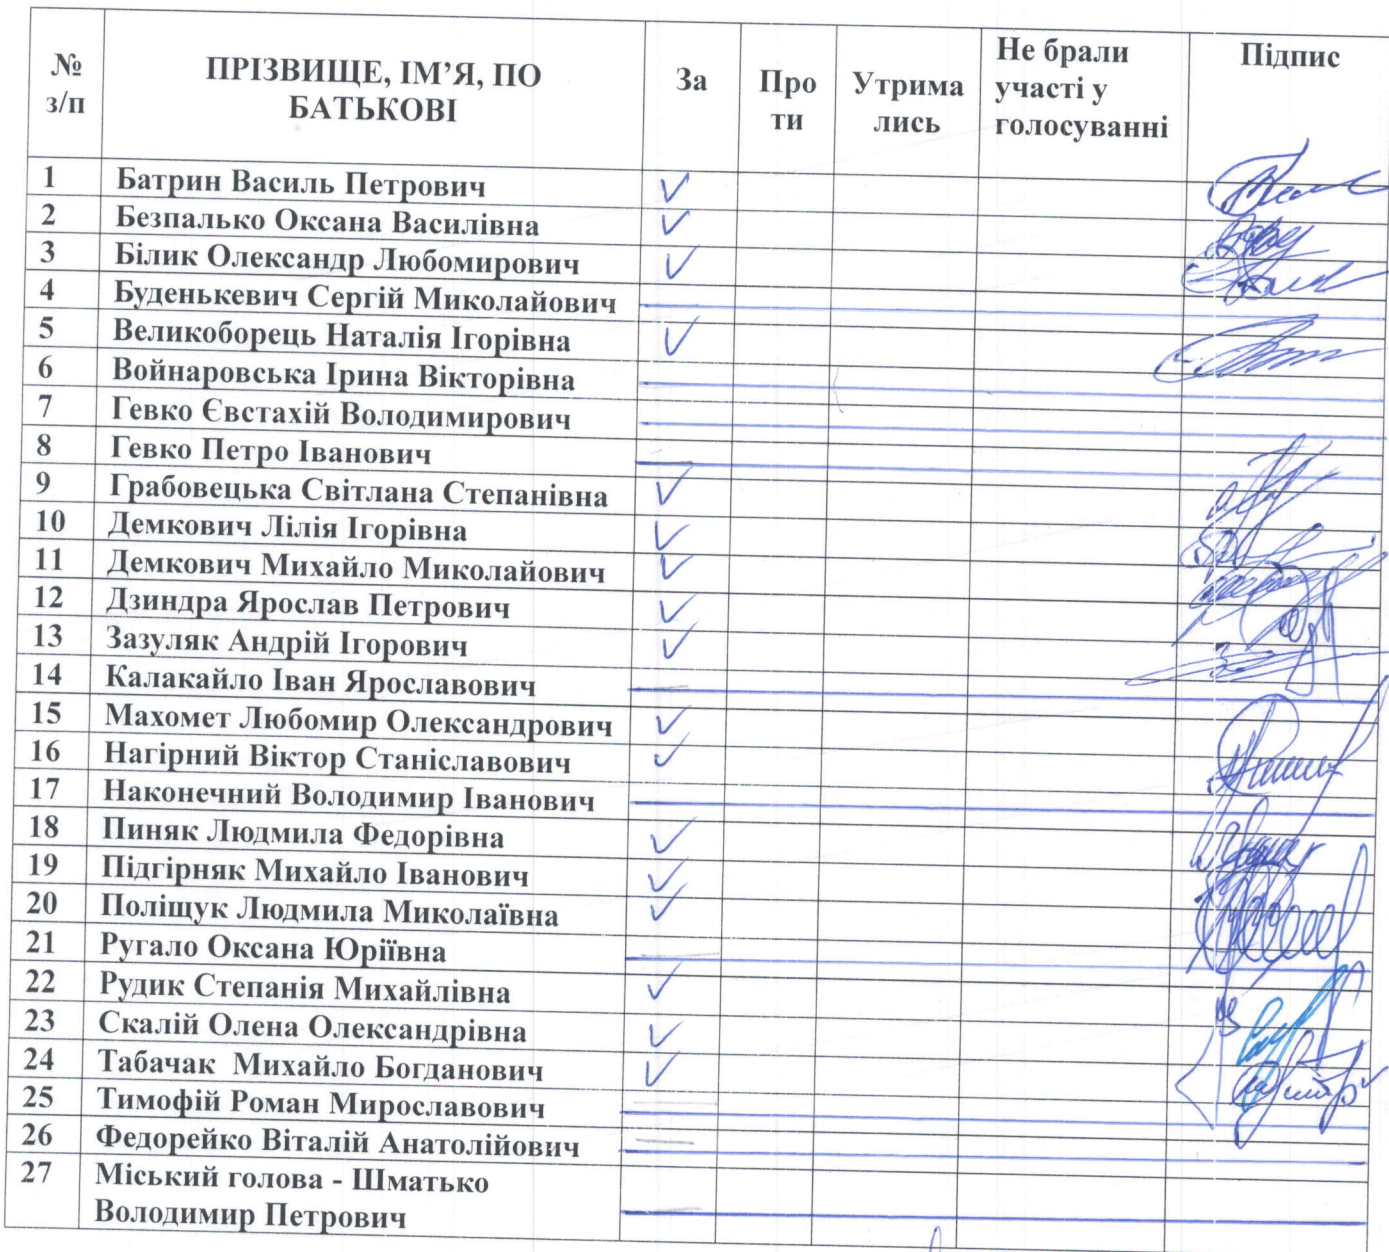 № з/п ПРІЗВИЩЕ, ІМ’Я, ПО БАТЬКОВІ За Про ти Утрима лись Не брали участі у голосуванні Підпис
1 Батрин Василь Петрович ✓
2 Безпалько Оксана Василівна ✓
3 Білик Олександр Любомирович ✓
4 Буденькевич Сергій Миколайович
5 Великоборець Наталія Ігорівна ✓
6 Войнаровська Ірина Вікторівна
7 Гевко Євстахій Володимирович
8 Гевко Петро Іванович
9 Грабовецька Світлана Степанівна ✓
10 Демкович Лілія Ігорівна ✓
11 Демкович Михайло Миколайович ✓
12 Дзиндра Ярослав Петрович ✓
13 Зазуляк Андрій Ігорович ✓
14 Калакайло Іван Ярославович
15 Махомет Любомир Олександрович ✓
16 Нагірний Віктор Станіславович ✓
17 Наконечний Володимир Іванович
18 Пиняк Людмила Федорівна ✓
19 Підгірняк Михайло Іванович ✓
20 Поліщук Людмила Миколаївна ✓
21 Ругало Оксана Юріївна
22 Рудик Степанія Михайлівна ✓
23 Скалій Олена Олександрівна ✓
24 Табачак Михайло Богданович ✓
25 Тимофій Роман Мирославович
26 Федорейко Віталій Анатолійович
27 Міський голова - Шматько
Володимир Петрович